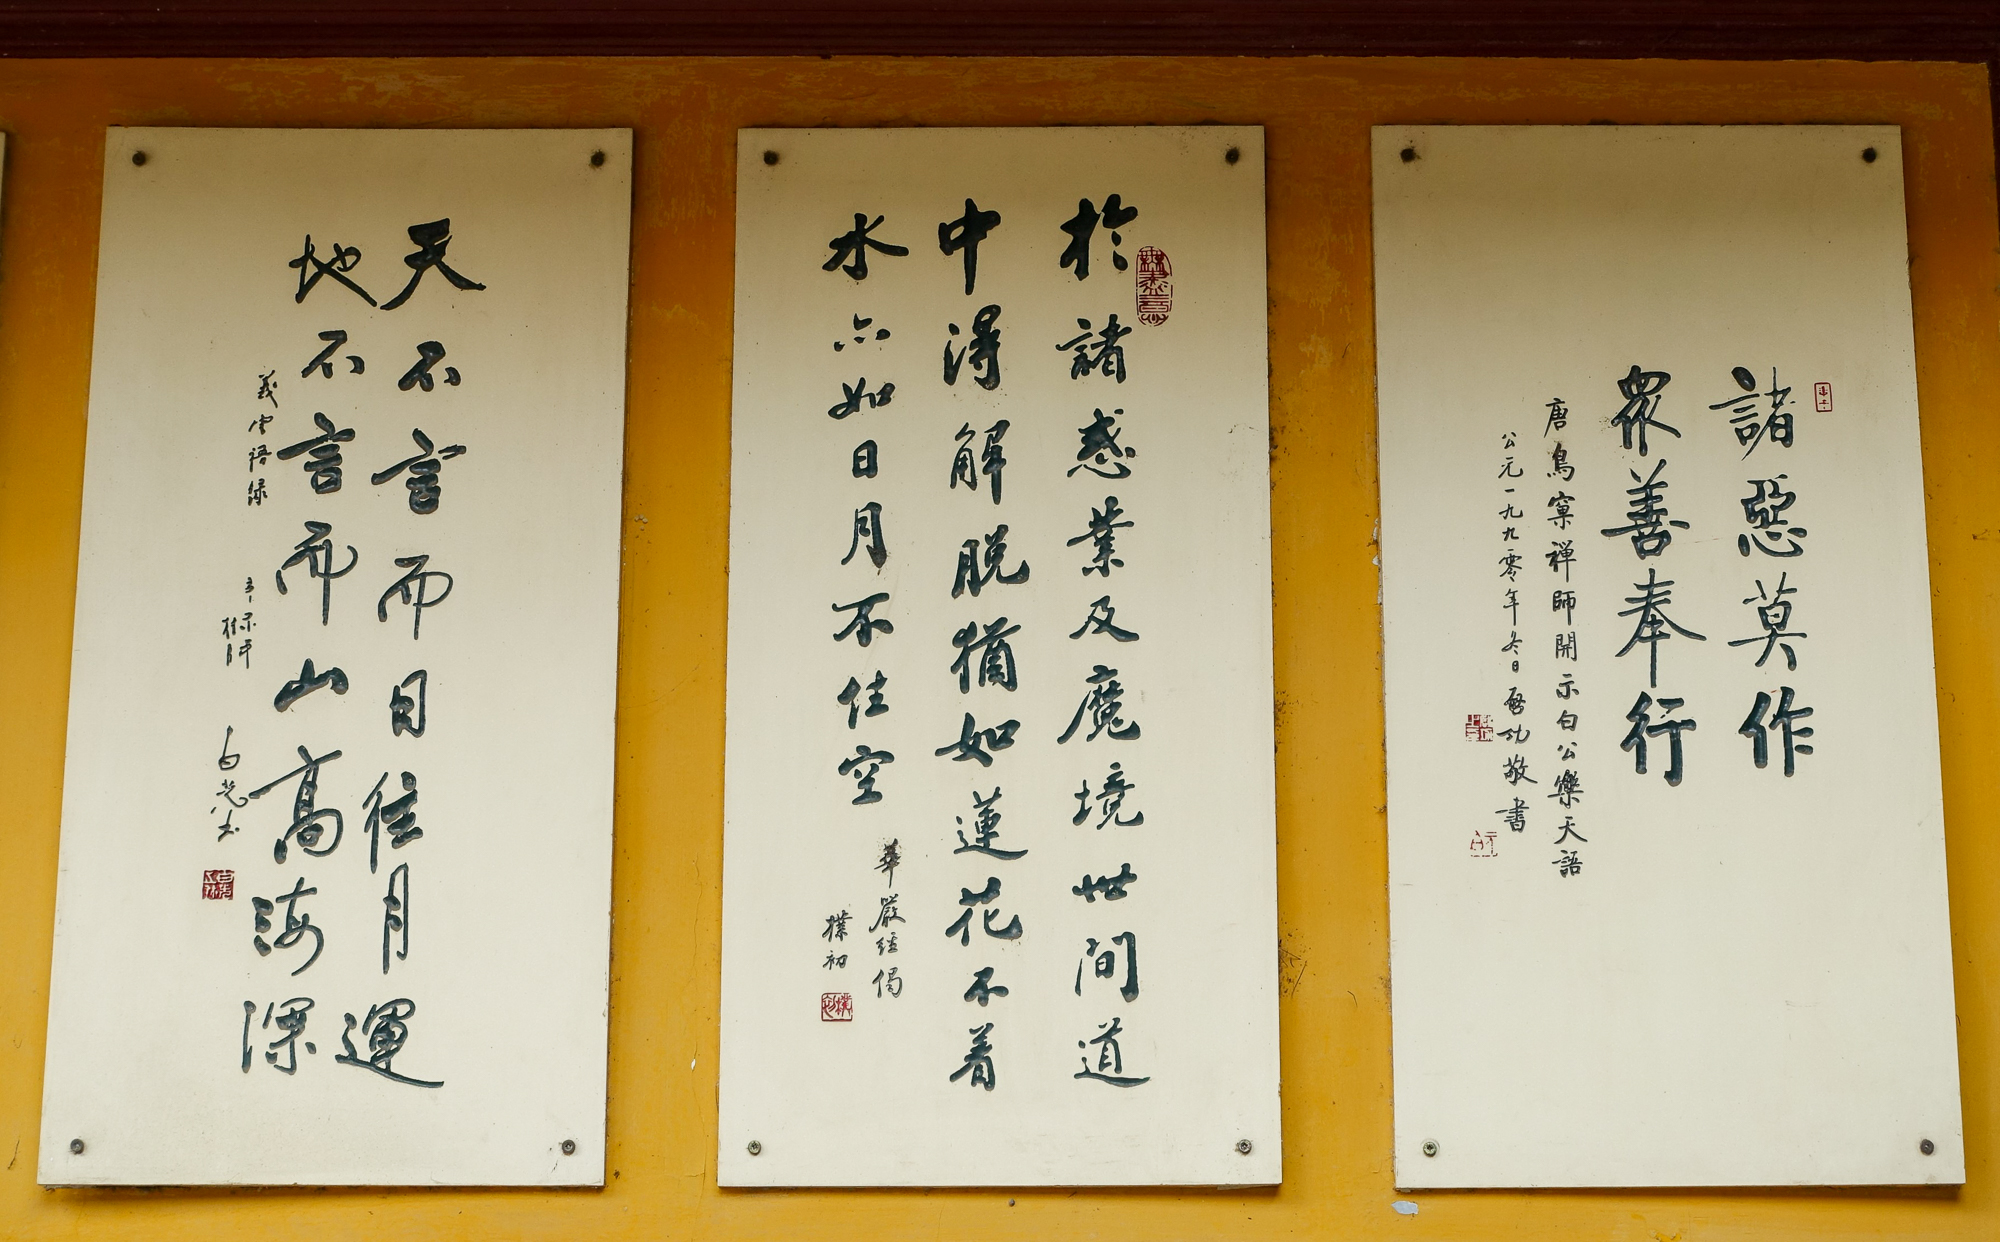 諸惡莫作
眾善奉行
唐鳥窠禅師開示白公樂天語
公元一九九零年冬日啓功敬書
於諸惑業及魔境世间道
中得解脱猶如蓮花不着
水亦如日月不住空
華嚴经偈
樸初
樸初
天不言而日往月運
地不言而山高海深
義雲语录